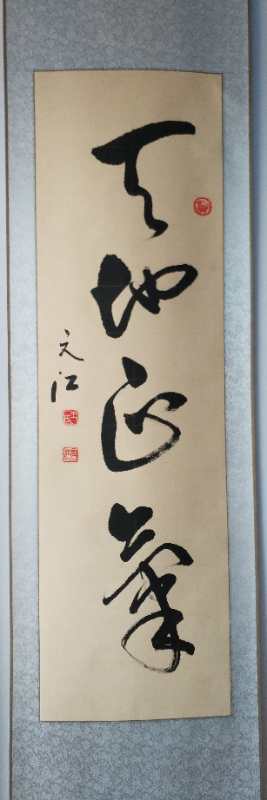 天地正氣
文江